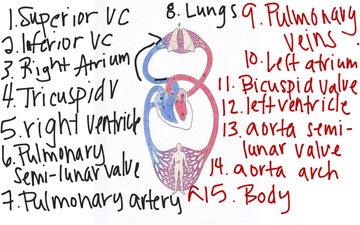 1. Superior VC
2. Inferior VC
3. Right Atrium
4. Tricuspid V
5. right ventricle
6. Pulmonary
semi-lunar valve
7. Pulmonary artery
8. Lungs
9. Pulmonary
veins.
10. Left atrium
11. Bicuspid valve
12. left ventricle
13. aorta semi-
lunar valve
14. aorta arch
15. Body